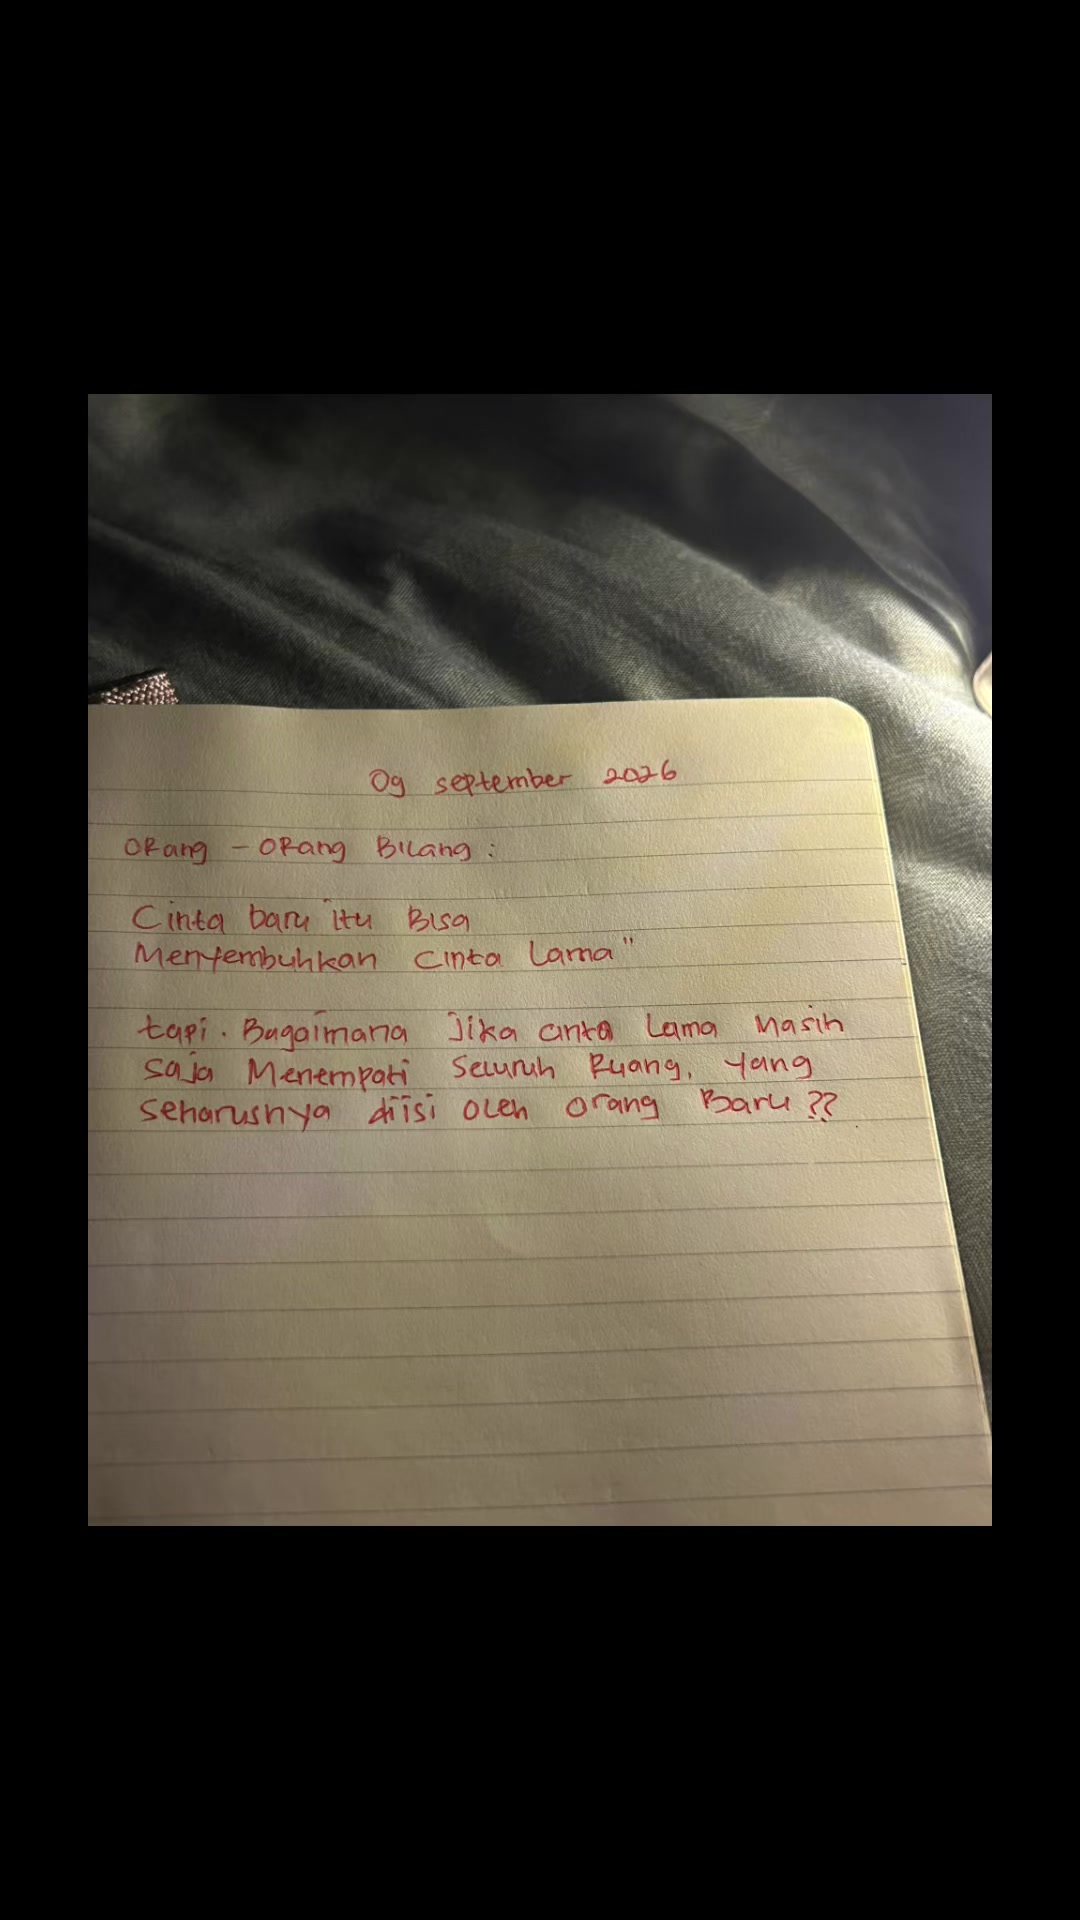 09 september 2026
Orang - Orang Bilang :
Cinta baru itu Bisa
Menyembuhkan Cinta Lama"
tapi. Bagaimana Jika cinta Lama Masih
saja Menempati Seluruh Ruang, yang
seharusnya diisi oleh orang Baru ??